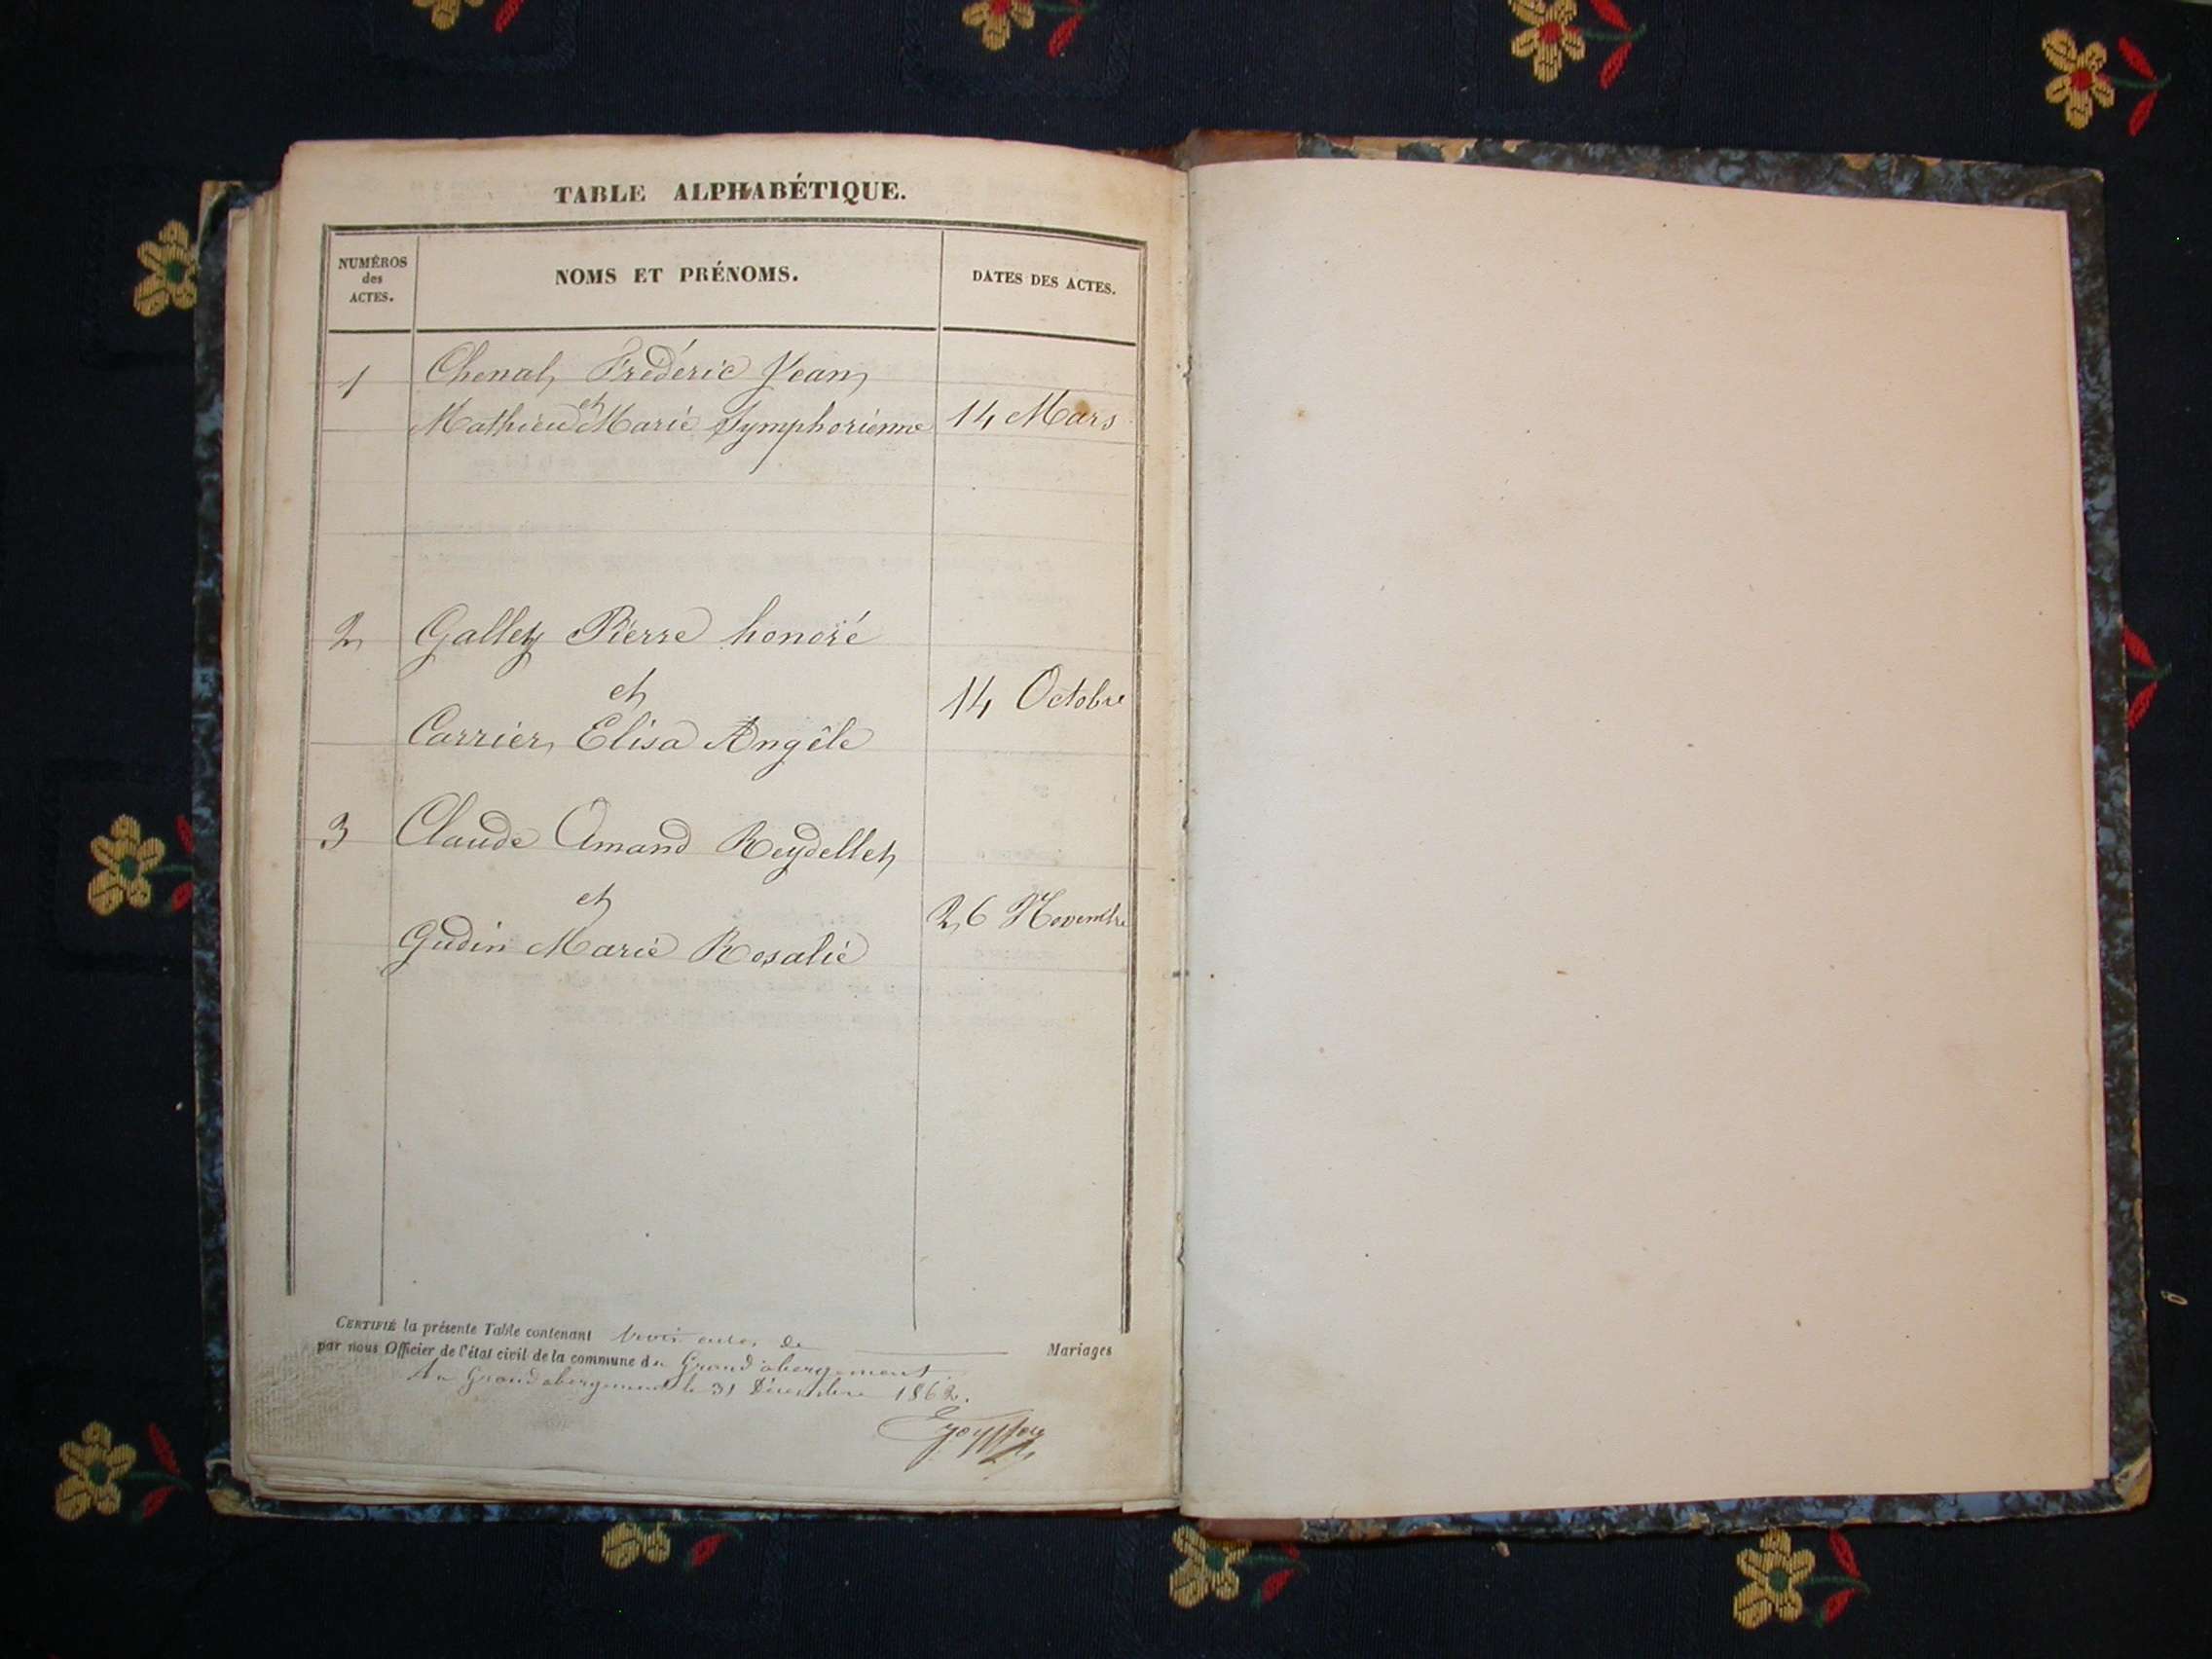 TABLE ALPHABÉTIQUE.
NUMÉROS
des
ACTES.
NOMS ET PRÉNOMS.
DATES DES ACTES.
1 Chenal, Frédéric Jean
et
Mathieu Marie Symphorienne 14 Mars
2 Gallet Pierre honoré
et
14 Octobre
Carrier Elisa Angèle
3 Claude Amand Reydellet
et
26 Novembre
Gudin Marie Rosalie
CERTIFIÉ la présente Table contenant trois actes de Mariages
par nous Officier de l'état civil de la commune du Grand abergement
Au Grand abergement le 31 Décembre 1862.